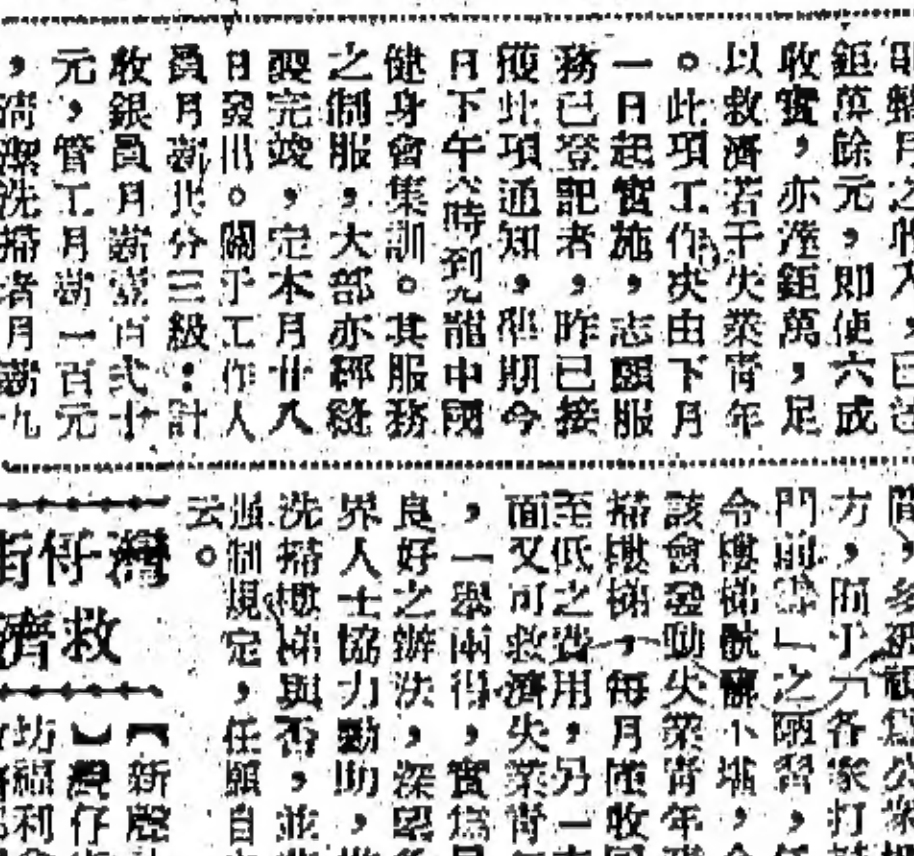 鉅萬餘元，則使六成
收實，亦達鉅萬，足
以救濟若干失業青年
。此項工作決由下月
一日起實施，志願服
務已登記者，昨已接
獲此項通知，準期今
日下午六時到九龍中國
健身會集訓。其服務
之制服，大部亦經縫
製完竣，定本月廿八
日發出。關于工作人
員月薪共分三級：計
收銀員月薪壹百弍十
元，管工月薪一百元
，清潔洗掃者月薪九
方，
門前
之陋習，
令樓梯骯髒不堪，
該會發動失業青年，
掃樓梯，每月
收
至低之費用，另一
面又可救濟失業青
，一舉兩得，實為
良好之辦法，深望
界人士協力勷助，
洗掃樓梯與否，並
強制規定，任願自
云。
灣仔街
救濟
【新
灣仔
坊福利